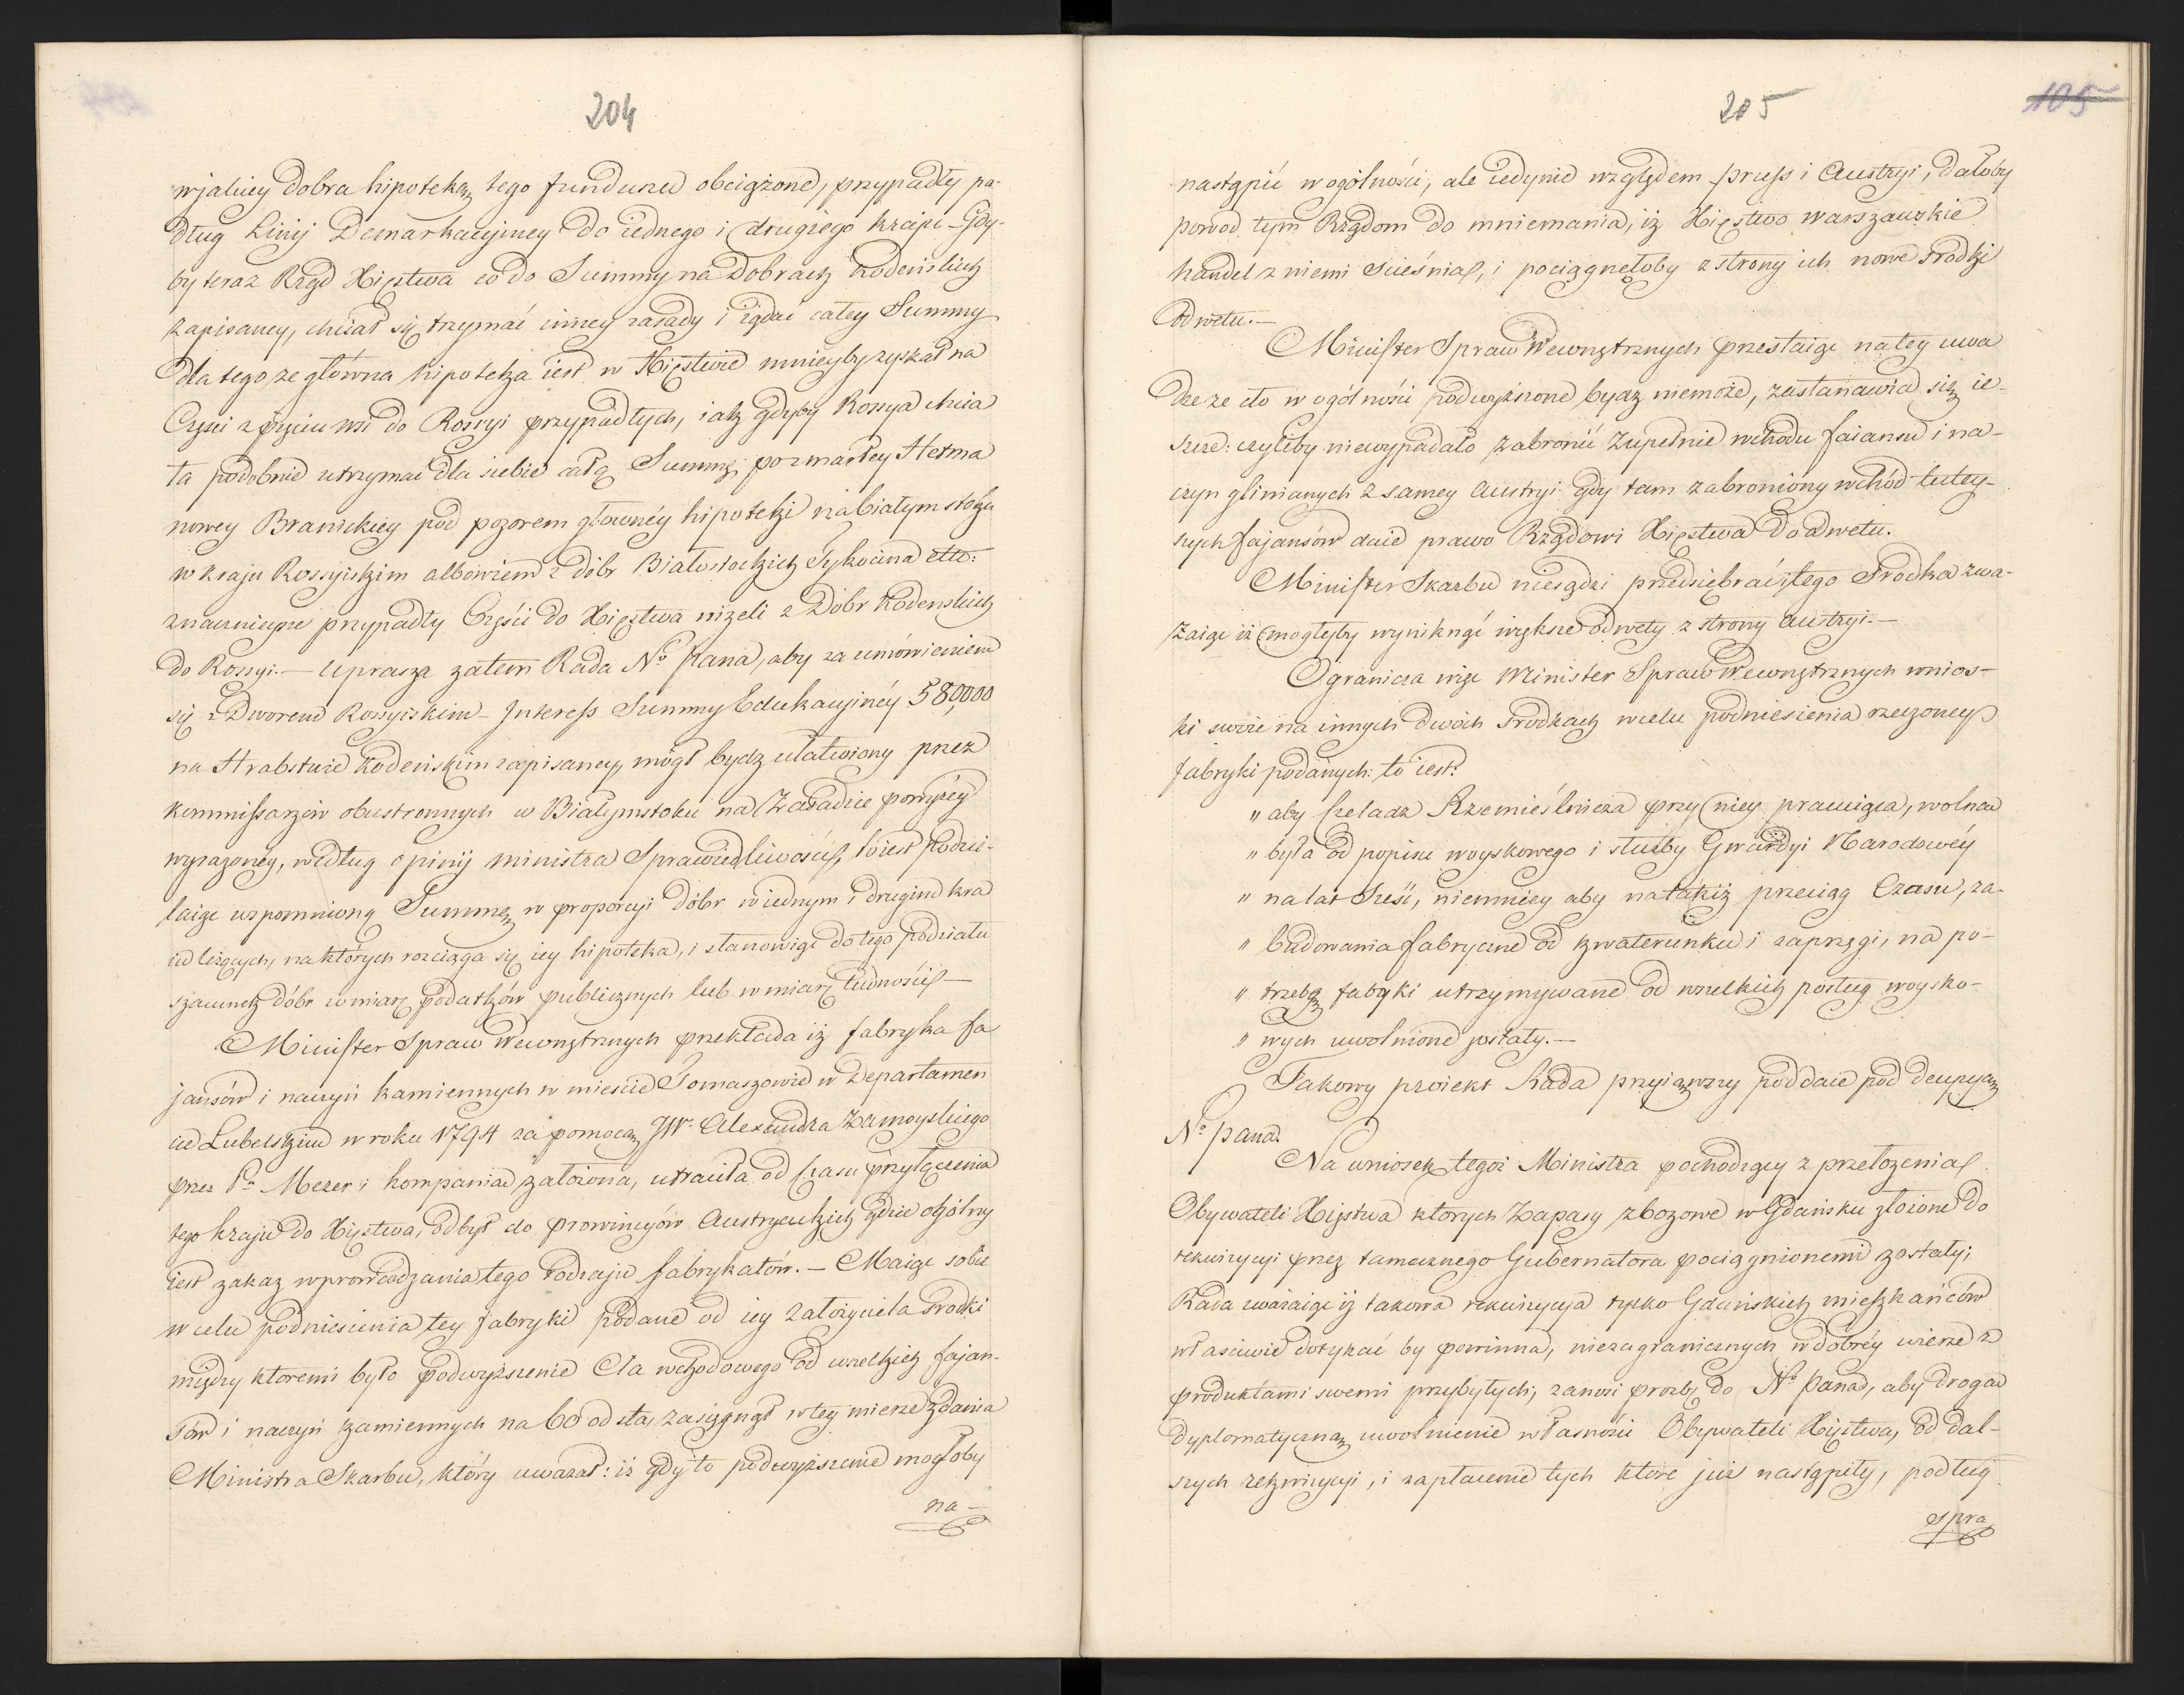 204
wjalney dobra hipoteką tego funduszu obciążone, przypadły po-
dług Linij Demarkacyiney do iednego i drugiego kraju - Gdy-
by teraz Rząd Xięstwa co do Summy na Dobrach Kodeńskich
zapisaney, chciał się trzymać inney zasady i żądać całey Summy
dla tego że główna hipoteka iest w Xięstwie mnieyby zyskał na
Części z pięciu wsi do Rossyi przypadłych, iak gdyby Rossya chcia
ła podobnie utrzymać dla siebie całą Summę po zmarłey Hetma
nowey Branickiey pod pozorem główney hipoteki na białym stoku
w kraju Rossyiskim albowiem z dóbr Białostockich Tykocina etto:
znacznieysze przypadły Części do Xięstwa niżeli z Dóbr Kodenskich
do Rossyi. — Uprasza zatem Rada No. Pana, aby za umówieniem
się z Dworem Rossyiskim - Interess Summy Edukacyiney 580,000
na Hrabstwie Kodeńskim zapisaney, mógł bydz ułatwiony przez
kommissarzów obustronnych w Białymstoku na Zasadzie powyżey
wyrażoney, według opinij ministra Sprawiedliwości, to iest podzie-
laiąc wspomnioną Summę w proporcyi dóbr w iednym i drugim kra
iu leżących, na których rozciąga się iey hipoteka, i stanowiąc do tego podziału
szacunek dóbr w miarę podatków publicznych lub w miarę ludności —
Minister Spraw Wewnętrznych przekłada iż fabryka fa
jansów i naczyń kamiennych w mieście Tomaszowie w Departamen
cie Lubelskim w roku 1794 za pomocą JW. Alexandra Zamoyskiego
przez Pa. Mezer i kompanią założona, utraciła od czasu przyłączenia
tego kraju do Xięstwa, odbyt do prowincyów Austryackich gdzie ogólny
iest zakaz wprowadzania tego rodzaju fabrykatów. — Maiąc sobie
w celu podniesienia tey fabryki podane od iey założyciela srodki
między ktoremi było podwyższenie Cła wchodowego od wszelkich fajan-
sów i naczyń kamiennych na 60 od sta, zasięgnął w tey mierze zdania
Ministra Skarbu, który uważał: iż gdy to podwyższenie mogłoby
na -
205
105
nastąpić w ogólności, ale iedynie względem pruss i Austryi, dałoby
powod tym Rządom do mniemania, iż Xięstwo warszawskie
handel z niemi scieśnia, i pociągnęłoby z strony ich nowe srodki
odwetu. —
Minister Spraw Wewnętrznych przestaiąc na tey uwa
dze że cło w ogólności podwyższone bydz niemoże, zastanawia się ie-
szcze: czyliby niewypadało zabronić Zupełnie wchodu faiansu i na-
czyn glinianych z samey Austryi gdy tam zabroniony wchód tutey-
szych fajansów daie prawo Rządowi Xięstwa do odwetu.
Minister Skarbu niesądzi przedsiębrać tego srodka zwa-
żaiąc iż mogłyby wyniknąć większe odwety z strony Austryi. —
Ogranicza więc Minister Spraw Wewnętrznych wnios-
ki swoie na innych dwóch srodkach w celu podniesienia rzeczoney
fabryki podanych: to iest:
„ aby czeladz Rzemieślnicza przy niey pracuiąca, wolna
„ była od popisu woyskowego i służby Gwardyi Narodowéy
„ na lat sześć, niemniey aby na takiż przeciąg Czasu, za-
„ budowania fabryczne od kwaterunku i zaprzęgi, na po-
„ trzebę fabryki utrzymywane od wszelkich posług woysko-
„ wych uwolnione zostały. —
Takowy proiekt Rada przyiąwszy poddaie pod decyzyą
No. pana.
Na wniosek tegoż Ministra pochodzący z przełożenia
Obywateli Xięstwa ktorych Zapasy zbożowe w Gdańsku złożone do
rekwizycyi przez tamecznego Gubernatora pociągnionemi zostały;
Rada zważaiąc iż takowa rekwizycya tylko Gdańskich mieszkańców
właściwie dotykać by powinna, niezagranicznych w dobrey wierze z
produktami swemi przybyłych, zanosi prozby do No. Pana, aby drogą
dyplomatyczną uwolnienie własności Obywateli Xięstwa, od dal-
szych rekwizycyi, i zapłacenie tych które już nastąpiły, podług
spra